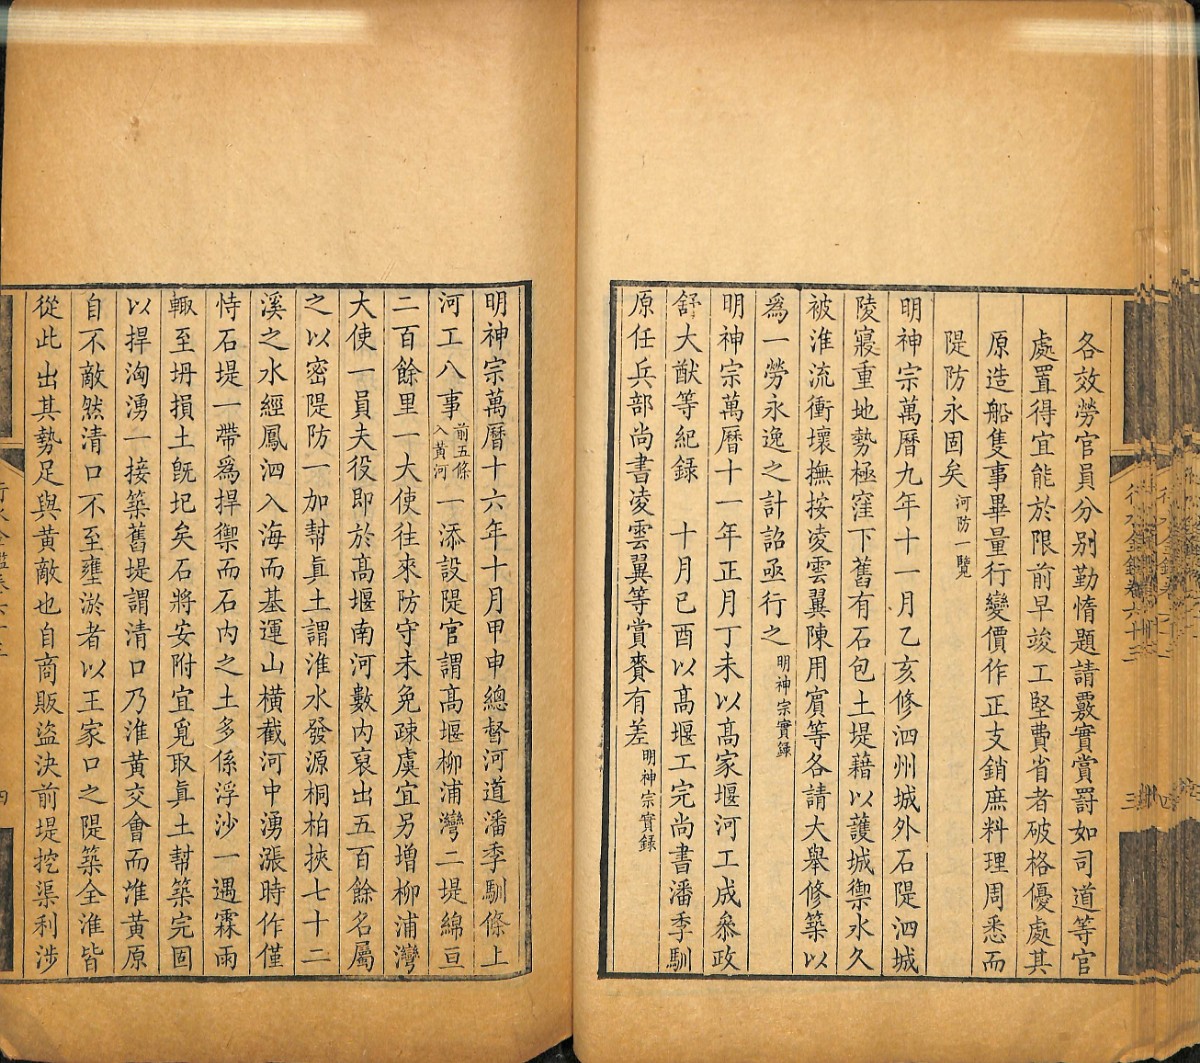 各效勞官員分別勤惰題請覈實賞罰如司道等官
處置得宜能於限前早竣工堅費省者破格優處其
原造船隻事畢量行變價作正支銷庶料理周悉而
隄防永固矣河防一覽
明神宗萬曆九年十一月乙亥修泗州城外石隄泗城
陵寢重地勢極窪下舊有石包土堤藉以護城禦水久
被淮流衝壞撫按凌雲翼陳用賔等各請大舉修築以
為一勞永逸之計詔亟行之明神宗實錄
明神宗萬曆十一年正月丁未以髙家堰河工成叅政
舒大猷等紀録　十月己酉以髙堰工完尚書潘季馴
原任兵部尚書凌雲翼等賞賚有差明神宗實録
行水金鑑卷六十三
三
明神宗萬曆十六年十月甲申總督河道潘季馴條上
河工八事前五條入黃河一添設隄官謂髙堰柳浦灣二堤綿亘
二百餘里一大使往來防守未免疎虞宜另增柳浦灣
大使一員夫役即於髙堰南河數內裒出五百餘名屬
之以密隄防一加幫眞土謂淮水發源桐柏挾七十二
溪之水經鳳泗入海而基運山橫截河中湧漲時作僅
恃石堤一帶爲捍禦而石内之土多係浮沙一遇霖雨
輙至坍損土旣圮矣石將安附宜覓取眞土幫築完固
以捍洶湧一接築舊堤謂清口乃淮黄交會而淮黄原
自不敵然清口不至壅淤者以王家口之隄築全淮皆
從此出其勢足與黃敵也自商販盜決前堤挖渠利涉
四